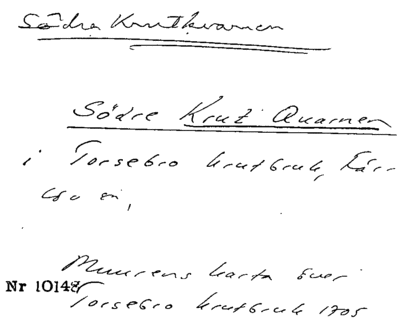 Södra Krutkvarnen
Södre Krut Quarnen
i Torsebro krutbruk, Fär-
lövs sn,
Murrens karta över
Nr 10148
Torsebro krutbruk 1705